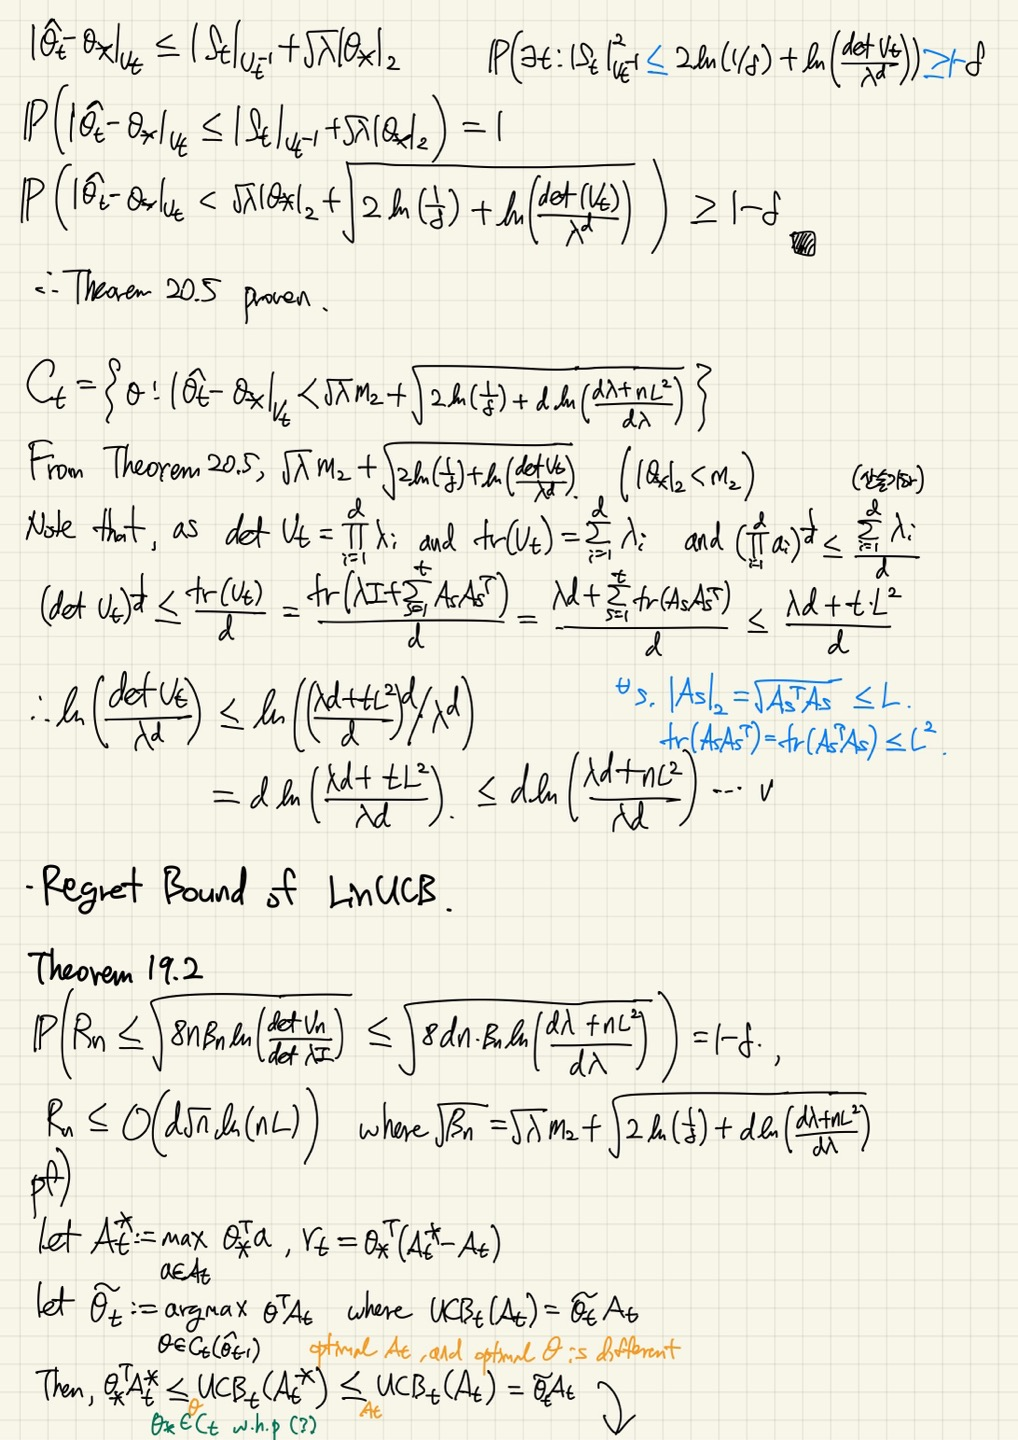 |θ̂t - θ*|Vt ≤ |St|Vt⁻¹ + √λ|θ*|₂   ℙ(∃t: |St|²Vt⁻¹ ≤ 2ln(1/δ) + ln(det Vt/λ^d)) ≥ 1-δ
ℙ(|θ̂t - θ*|Vt ≤ |St|Vt⁻¹ + √λ|θ*|₂) = 1
ℙ(|θ̂t - θ*|Vt < √λ|θ*|₂ + √(2 ln(1/δ) + ln(det(Vt)/λ^d))) ≥ 1-δ
∴ Theorem 20.5 proven.
Ct = {θ : |θ̂t - θ*|Vt < √λ m₂ + √(2 ln(1/δ) + d ln((dλ+nL²)/dλ))}
From Theorem 20.5, √λ m₂ + √(2ln(1/δ) + ln(det Vt/λ^d)). (|θ*|₂ < m₂)
(산술기하)
Note that, as det Vt = ∏_{i=1}^d λi and tr(Vt) = ∑_{i=1}^d λi and (∏_{i=1}^d ai)^{1/d} ≤ ∑_{i=1}^d λi / d
(det Vt)^{1/d} ≤ tr(Vt)/d = tr(λI + ∑_{s=1}^t AsAsᵀ)/d = (λd + ∑_{s=1}^t tr(AsAsᵀ))/d ≤ (λd + t·L²)/d
∴ ln(det Vt/λ^d) ≤ ln(((λd+tL²)/d)^d/λ^d)
∀s. |As|₂ = √(AsᵀAs) ≤ L.
tr(AsAsᵀ) = tr(AsᵀAs) ≤ L².
= d ln((λd + tL²)/λd). ≤ d ln((λd+nL²)/λd) ... v
· Regret Bound of LinUCB.
Theorem 19.2
ℙ(Rn ≤ √(8nβn ln(det Vn/det λI)) ≤ √(8dn·βn ln((dλ+nL²)/dλ))) = 1-δ.,
Rn ≤ O(d√n ln(nL)) where √βn = √λ m₂ + √(2 ln(1/δ) + d ln((dλ+nL²)/dλ))
pf)
Let At* := max_{a∈At} θ*ᵀa, rt = θ*ᵀ(At* - At)
let θ̃t := argmax_{θ∈Ct(θ̂t-1)} θᵀAt where UCBt(At) = θ̃t At
optimal At, and optimal θ is different
Then, θ*ᵀAt* ≤_θ UCBt(At*) ≤_At UCBt(At) = θ̃t At
θ* ∈ Ct w.h.p (?)